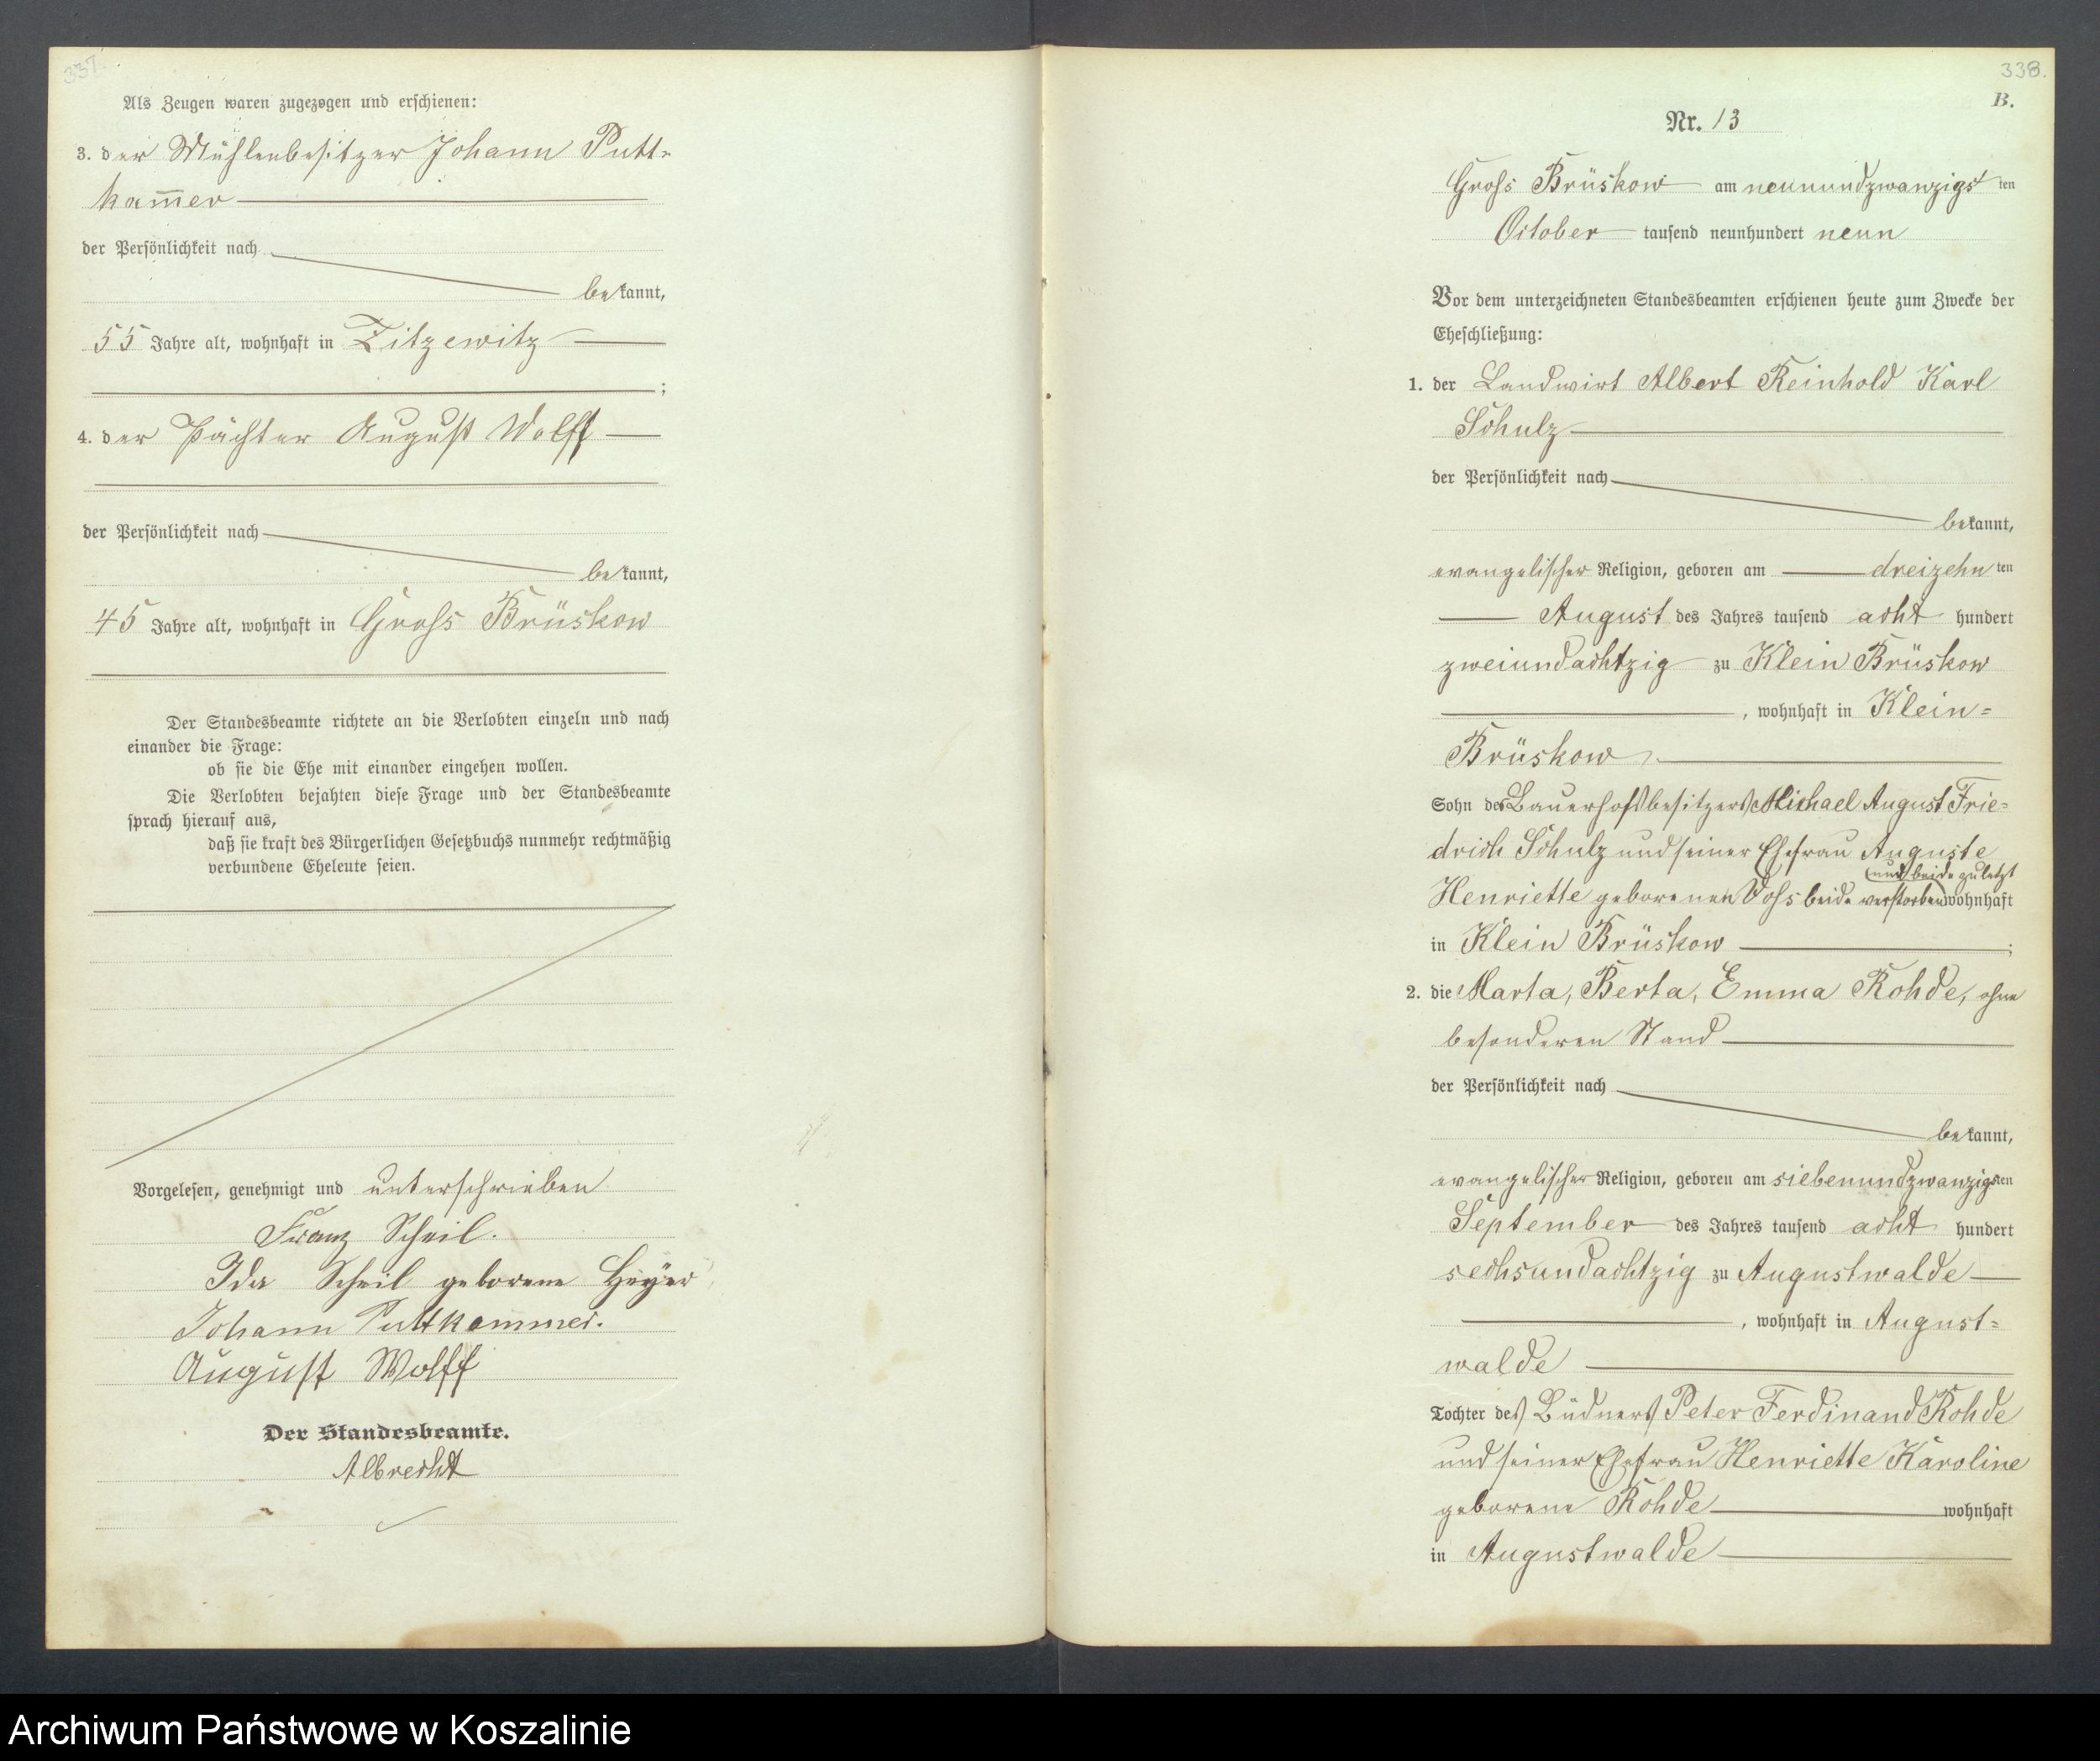 337.
Als Zeugen waren zugezogen und erschienen:
3. der Mühlenbesitzer Johann Putt-
kam̅er
der Persönlichkeit nach
bekannt,
55 Jahre alt, wohnhaft in Zitzewitz
;
4. der Pächter August Wolff
der Persönlichkeit nach
bekannt,
45 Jahre alt, wohnhaft in Gross Brüskow
Der Standesbeamte richtete an die Verlobten einzeln und nach
einander die Frage:
ob sie die Ehe mit einander eingehen wollen.
Die Verlobten bejahten diese Frage und der Standesbeamte
sprach hierauf aus,
daß sie kraft des Bürgerlichen Gesetzbuchs nunmehr rechtmäßig
verbundene Eheleute seien.
Vorgelesen, genehmigt und unterschrieben
Franz Scheil.
Ida Scheil geborene Heyer
Johann Puttkammer.
August Wolff
Der Standesbeamte.
Albrecht
338.
B.
Nr. 13
Gross Brüskow am neunundzwanzigsten
October tausend neunhundert neun
Vor dem unterzeichneten Standesbeamten erschienen heute zum Zwecke der
Eheschließung:
1. der Landwirt Albert Reinhold Karl
Schulz
der Persönlichkeit nach
bekannt,
evangelischer Religion, geboren am dreizehnten
August des Jahres tausend acht hundert
zweiundachtzig zu Klein Brüskow
, wohnhaft in Klein-
Brüskow
Sohn des Bauerhofsbesitzers Michael August Frie-
drich Schulz und seiner Ehefrau Auguste
und beide zuletzt
Henriette geborenen Voss beide verstorben wohnhaft
in Klein Brüskow ;
2. die Marta, Berta, Emma Rohde, ohne
besonderen Stand
der Persönlichkeit nach
bekannt,
evangelischer Religion, geboren am siebenundzwanzigsten
September des Jahres tausend acht hundert
sechsundachtzig zu Augustwalde
, wohnhaft in August-
walde
Tochter des Büdners Peter Ferdinand Rohde
und seiner Ehefrau Henriette Karoline
geborene Rohde wohnhaft
in Augustwalde
Archiwum Państwowe w Koszalinie